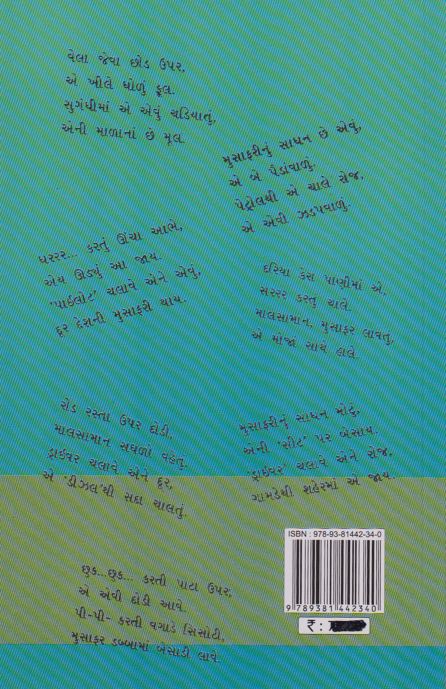 વેલા જેવા છોડ ઉપર,
એ ખીલે ધોળું ફૂલ.
સુગંધીમાં એ એવું ચડિયાતું,
એની માળાનાં છે મૂલ.
મુસાફરીનું સાધન છે એવું,
એ બે પૈડાંવાળું.
પેટ્રોલથી એ ચાલે રોજ,
એ એવી ઝડપવાળું.
ઘરરર... કરતું ઊંચા આભે,
એય ઊડ્યું આ જાય.
'પાઇલોટ' ચલાવે એને એવું,
દૂર દેશની મુસાફરી થાય.
દરિયા કેરા પાણીમાં એ,
સરરર કરતુ ચાલે.
માલસામાન, મુસાફર લાવતું,
એ મોજાં સાથે હાલે.
રોડ રસ્તા ઉપર દોડી,
માલસામાન સઘળો વહેતું.
ડ્રાઇવર ચલાવે એને દૂર,
એ 'ડીઝલ'થી સદા ચાલતું.
મુસાફરીનું સાધન મોટું,
એની 'સીટ' પર બેસાય.
'ડ્રાઇવર' ચલાવે એને રોજ,
ગામડેથી શહેરમાં એ જાય.
છુક...છુક... કરતી પાટા ઉપર,
એ એવી દોડી આવે.
પી-પી- કરતી વગાડે સિસોટી,
મુસાફર ડબ્બામાં બેસાડી લાવે.
ISBN : 978-93-81442-34-0
9 789381 442340
₹ :